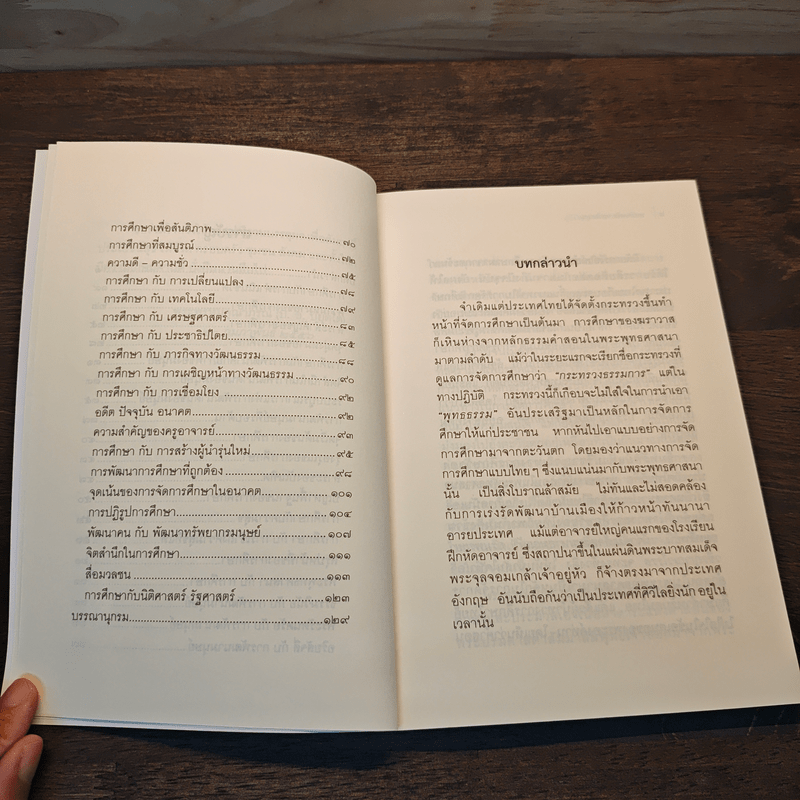 การศึกษาเพื่อสันติภาพ................................๗๐
การศึกษาที่สมบูรณ์................................๗๒
ความดี – ความชั่ว................................๗๕
การศึกษา กับ การเปลี่ยนแปลง................................๗๘
การศึกษา กับ เทคโนโลยี................................๗๙
การศึกษา กับ เศรษฐศาสตร์................................๘๓
การศึกษา กับ ประชาธิปไตย................................๘๕
การศึกษา กับ ภารกิจทางวัฒนธรรม................................๘๘
การศึกษา กับ การเผชิญหน้าทางวัฒนธรรม................................๙๐
การศึกษา กับ การเชื่อมโยง................................๙๒
อดีต ปัจจุบัน อนาคต................................๙๒
ความสำคัญของครูอาจารย์................................๙๓
การศึกษา กับ การสร้างผู้นำรุ่นใหม่................................๙๕
การพัฒนาการศึกษาที่ถูกต้อง................................๙๘
จุดเน้นของการจัดการศึกษาในอนาคต................................๑๐๑
การปฏิรูปการศึกษา................................๑๐๔
พัฒนาคน กับ พัฒนาทรัพยากรมนุษย์................................๑๐๗
จิตสำนึกในการศึกษา................................๑๑๑
สื่อมวลชน................................๑๑๓
การศึกษากับนิติศาสตร์ รัฐศาสตร์................................๑๒๓
บรรณานุกรม................................๑๒๙
บทกล่าวนำ
จำเดิมแต่ประเทศไทยได้จัดตั้งกระทรวงขึ้นทำ
หน้าที่จัดการศึกษาเป็นต้นมา การศึกษาของฆราวาส
ก็เหินห่างจากหลักธรรมคำสอนในพระพุทธศาสนา
มาตามลำดับ แม้ว่าในระยะแรกจะเรียกชื่อกระทรวงที่
ดูแลการจัดการศึกษาว่า “กระทรวงธรรมการ” แต่ใน
ทางปฏิบัติ กระทรวงนี้ก็เกือบจะไม่ใส่ใจในการนำเอา
“พุทธธรรม” อันประเสริฐมาเป็นหลักในการจัดการ
ศึกษาให้แก่ประชาชน หากหันไปเอาแบบอย่างการจัด
การศึกษามาจากตะวันตก โดยมองว่าแนวทางการจัด
การศึกษาแบบไทยๆ ซึ่งแนบแน่นมากับพระพุทธศาสนา
นั้น เป็นสิ่งโบราณล้าสมัย ไม่ทันและไม่สอดคล้อง
กับการเร่งรัดพัฒนาบ้านเมืองให้ก้าวหน้าทันนานา
อารยประเทศ แม้แต่อาจารย์ใหญ่คนแรกของโรงเรียน
ฝึกหัดอาจารย์ ซึ่งสถาปนาขึ้นในแผ่นดินพระบาทสมเด็จ
พระจุลจอมเกล้าเจ้าอยู่หัว ก็จ้างตรงมาจากประเทศ
อังกฤษ อันนับถือกันว่าเป็นประเทศที่ศิวิไลยิ่งนัก อยู่ใน
เวลานั้น